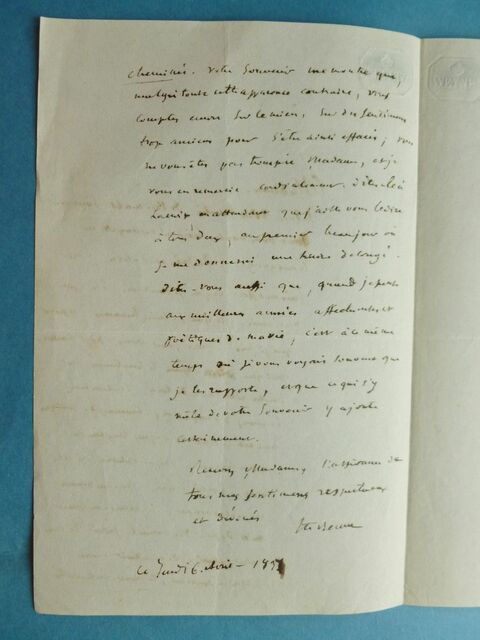 cheminées. Votre souvenir me montre que,
malgré toute cette apparence contraire, vous
comptez encore sur le mien, sur des sentimens
trop anciens pour s'être ainsi effacés; vous
ne vous êtes pas trompée, Madame, et je
vous en remercie cordialement. Dites-le à
en attendant que j'aille vous le dire
à tous deux, au premier beau jour où
je me donnerai une heure de congé.
Dites-vous aussi que, quand je pense
aux meilleures années affectueuses et
poétiques de ma vie, c'est à ce même
temps où je vous voyais souvent que
je les rapporte, et que ce qui s'y
mêle de votre souvenir y ajoute
certainement.
Recevez, Madame, l'assurance de
tous mes sentimens respectueux
et dévoués
Ste Beuve
ce jeudi 6 avril